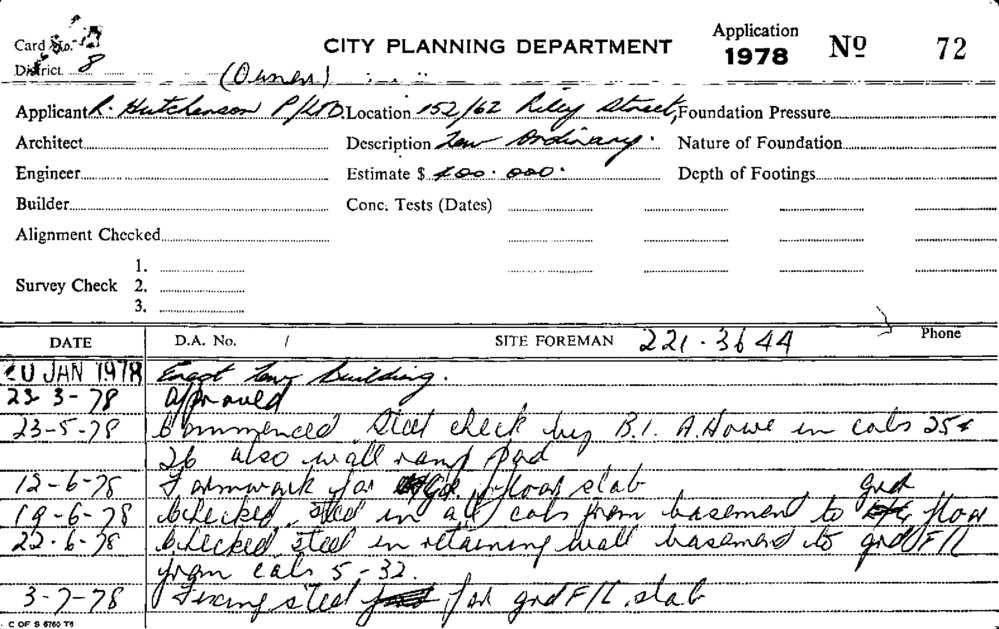 Card No.
CITY PLANNING DEPARTMENT
Application
1978 Nº 72
District 8
(Owner)
Applicant R. Hutchenson P/LTD. Location 152/62 Riley Street, Foundation Pressure
Architect Description New Ordinary. Nature of Foundation
Engineer Estimate $ 400.000. Depth of Footings
Builder Conc. Tests (Dates)
Alignment Checked
1.
Survey Check 2.
3.
DATE D.A. No. / SITE FOREMAN 221.3644 Phone
20 JAN 1978 Erect New Building.
23-3-78 Approved
23-5-78 Commenced Steel check by B.I. A. Howe in cols 25 &
26 also wall ramp pad
12-6-78 Formwork for Gd. floor slab
19-6-78 Checked steel in all cols from basement to grd floor
22-6-78 Checked steel in retaining wall basement to grd F/L
from cals 5-32.
3-7-78 Fixing steel for grd F/L slab
C OF S 6760 T6